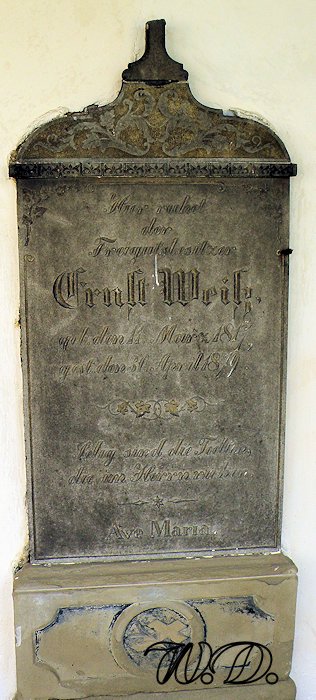 Hier ruhet
der
Freigutsbesitzer
Ernst Weisz.
geb. den 11. März 18
gest. den 31. April 1879.
Selig sind die Todten,
die im Herrn
Ave Maria.
W.D.